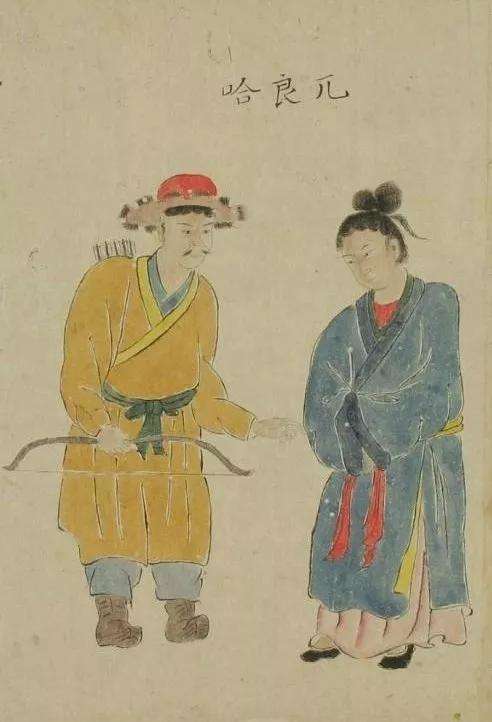 兀良哈